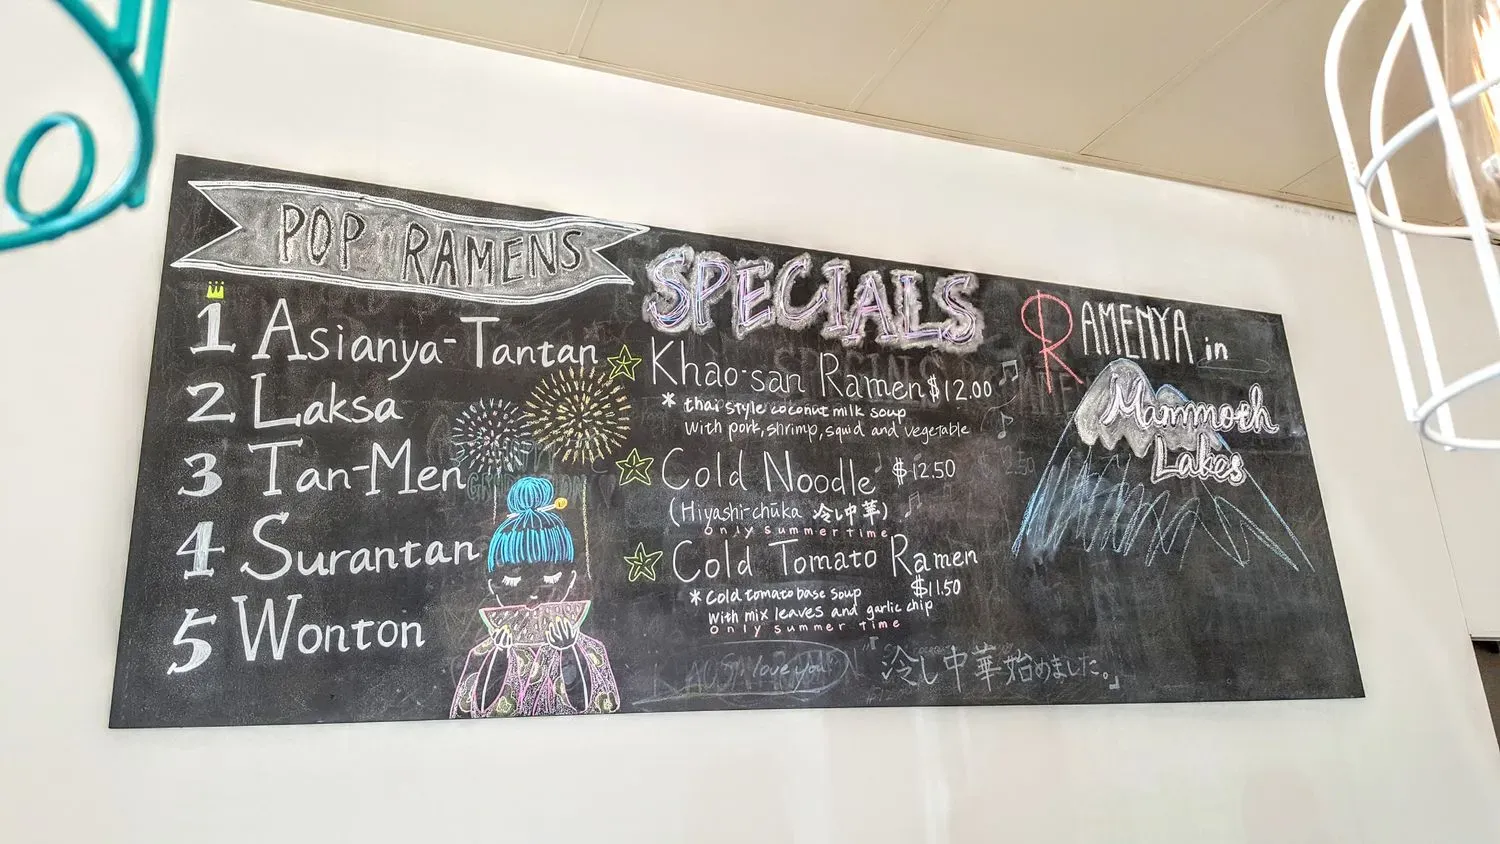 POP RAMENS
1 Asianya-Tantan
2 Laksa
3 Tan-Men
4 Surantan
5 Wonton
SPECIALS
Khao-san Ramen $12.00
* thai style coconut milk soup
with pork, shrimp, squid and vegetable
Cold Noodle $12.50
(Hiyashi-chūka 冷し中華)
only summer time
Cold Tomato Ramen
$11.50
* Cold tomato base soup
with mix leaves and garlic chip
only summer time
love you
冷し中華始めました。」
RAMENYA in
Mammoth
Lakes